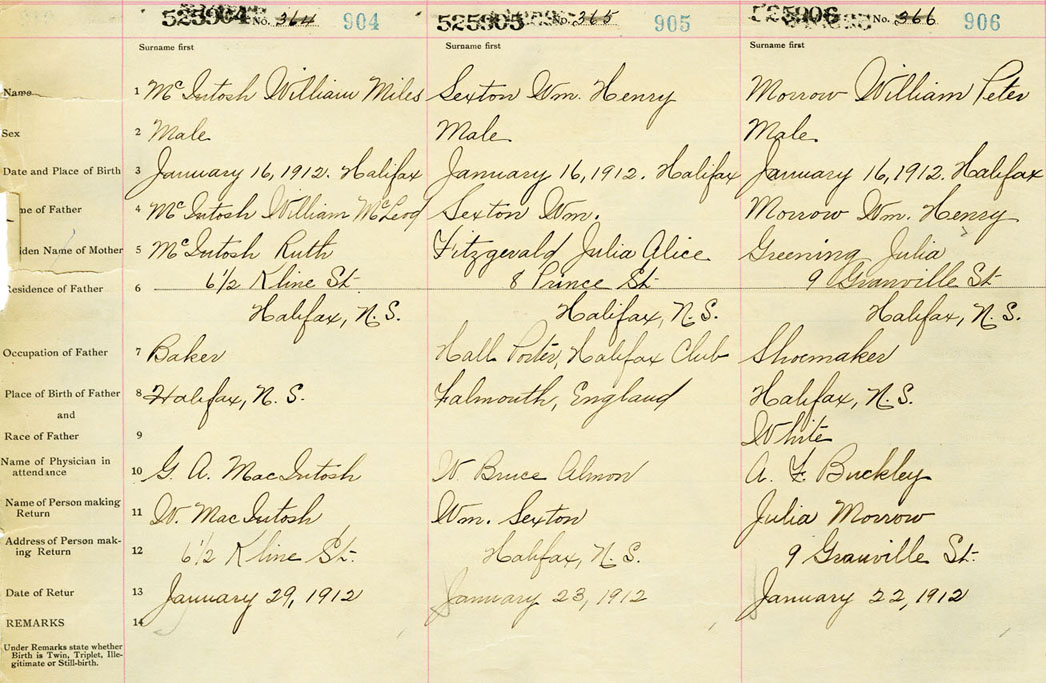 525904 No. 364 904
525905 No. 365 905
525906 No. 366 906
Surname first Surname first Surname first
Name 1 McIntosh William Miles Sexton Wm. Henry Morrow William Peter
Sex 2 Male Male Male
Date and Place of Birth 3 January 16, 1912. Halifax January 16, 1912. Halifax January 16, 1912. Halifax
me of Father 4 McIntosh William McLeod Sexton Wm. Morrow Wm. Henry
iden Name of Mother 5 McIntosh Ruth Fitzgerald Julia Alice Greening Julia
Residence of Father 6 6½ Kline St. 8 Prince St. 9 Granville St
Halifax, N.S. Halifax, N.S. Halifax, N.S.
Occupation of Father 7 Baker Hall Porter, Halifax Club Shoemaker
Place of Birth of Father 8 Halifax, N.S. Falmouth, England Halifax, N.S.
and
Race of Father 9 White
Name of Physician in
attendance 10 G. A. MacIntosh W Bruce Almon A. F. Buckley
Name of Person making
Return 11 W. MacIntosh Wm. Sexton Julia Morrow
Address of Person mak-
ing Return 12 6½ Kline St. Halifax, N.S. 9 Granville St.
Date of Retur 13 January 29, 1912 January 23, 1912 January 22, 1912
REMARKS 14
Under Remarks state whether
Birth is Twin, Triplet, Ille-
gitimate or Still-birth.